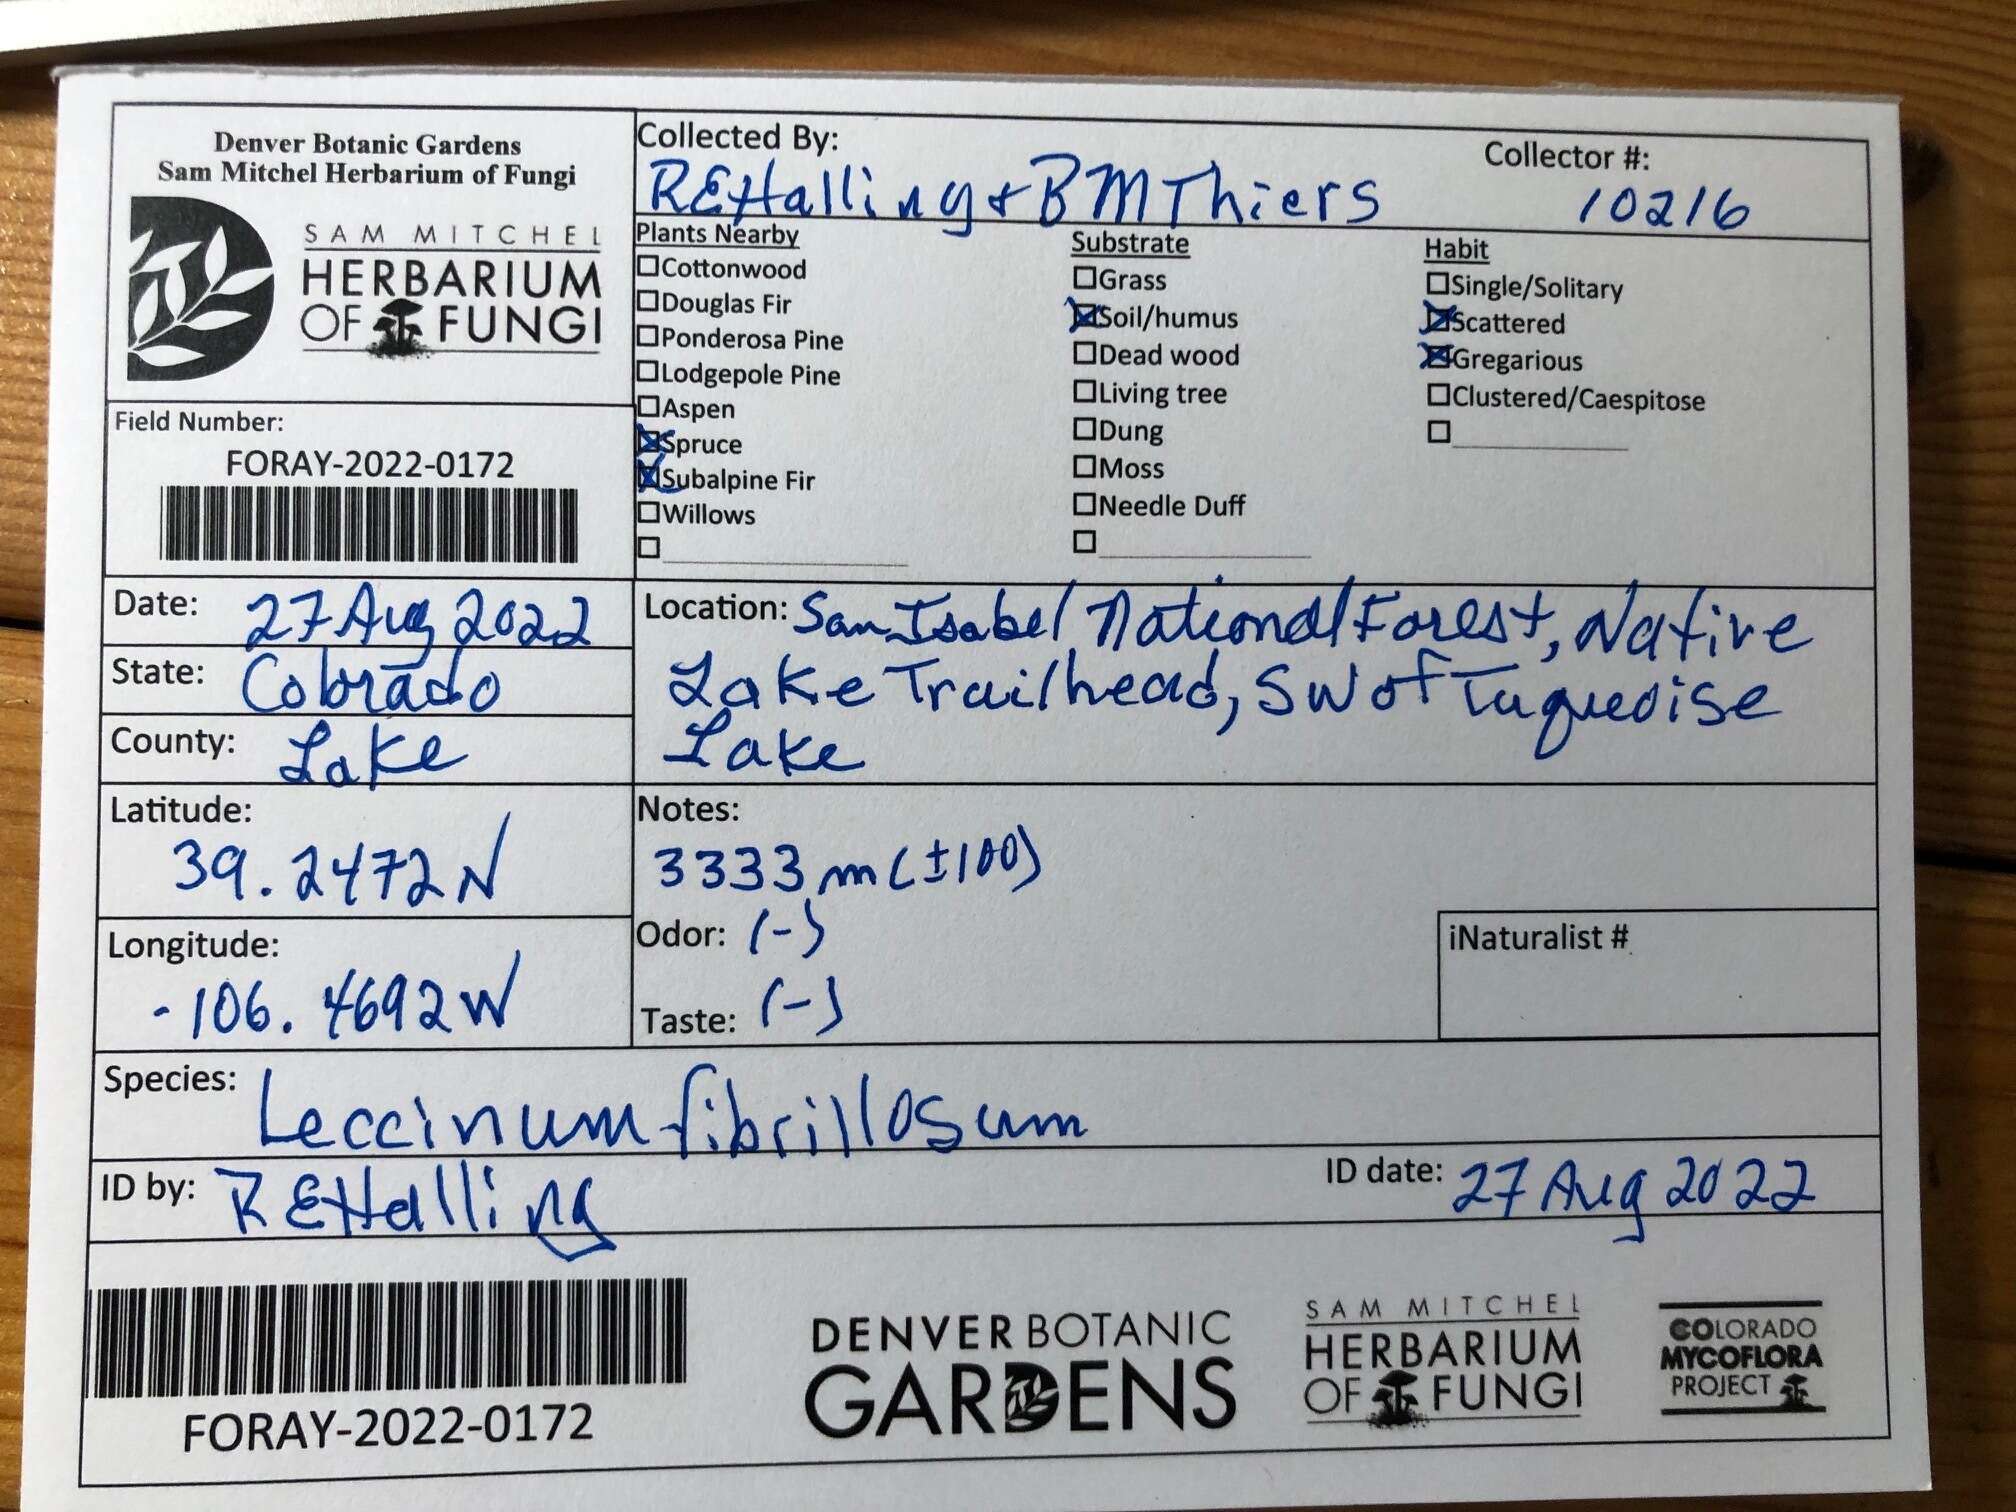 Denver Botanic Gardens
Sam Mitchel Herbarium of Fungi
SAM MITCHEL
HERBARIUM
OF FUNGI
Field Number:
FORAY-2022-0172
Collected By:
REHalling + BMThiers
Collector #:
10216
Plants Nearby
Cottonwood
Douglas Fir
Ponderosa Pine
Lodgepole Pine
Aspen
Spruce
Subalpine Fir
Willows
Substrate
Grass
Soil/humus
Dead wood
Living tree
Dung
Moss
Needle Duff
Habit
Single/Solitary
Scattered
Gregarious
Clustered/Caespitose
Date: 27 Aug 2022
State: Colorado
County: Lake
Location: San Isabel National Forest, Native
Lake Trailhead, SW of Tuqueoise
Lake
Latitude:
39.2472 N
Longitude:
-106.4692 W
Notes:
3333 m (±100)
Odor: (-)
Taste: (-)
iNaturalist #
Species: Leccinum fibrillosum
ID by: REHalling
ID date: 27 Aug 2022
FORAY-2022-0172
DENVER BOTANIC
GARDENS
SAM MITCHEL
HERBARIUM
OF FUNGI
COLORADO
MYCOFLORA
PROJECT